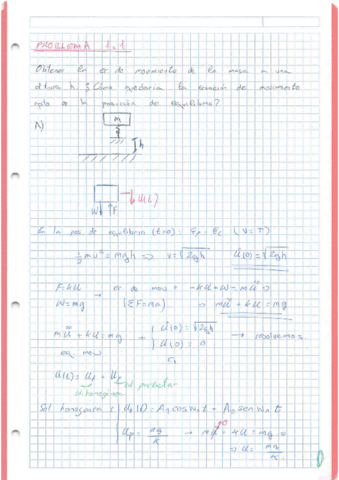 PROBLEMA 1.1
Obtener la ec de movimiento de la masa m a una
altura h. ¿Cómo quedaría la ecuación de movimiento
rpto a la posición de equilibrio?
A)
m
h
u(t)
W F
la pos de equilibrio (t=0): Ep = Ec (V=T)
1/2 mv² = mgh => v = √2gh u̇(0) = √2gh
F=kU → ec de mov → -kU+W = mü =>
W=mg (ΣF=ma) => mü + kU = mg
mü + kU = mg + { u̇(0) = √2gh → resolvemos
ec mov U(0) = 0
U(t) = Uh + Up
sol particular
sol homogénea
Sol homogénea: Uh(t) = A₁ cos wn t + A₂ sen wn t
Up = mg/k → mü + kU = mg =>
=> U = mg/k